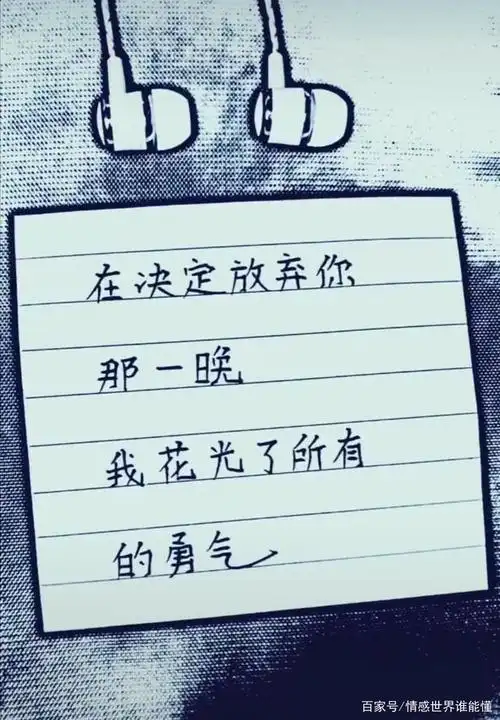 在决定放弃你
那一晚
我花光了所有
的勇气
百家号/情感世界谁能懂